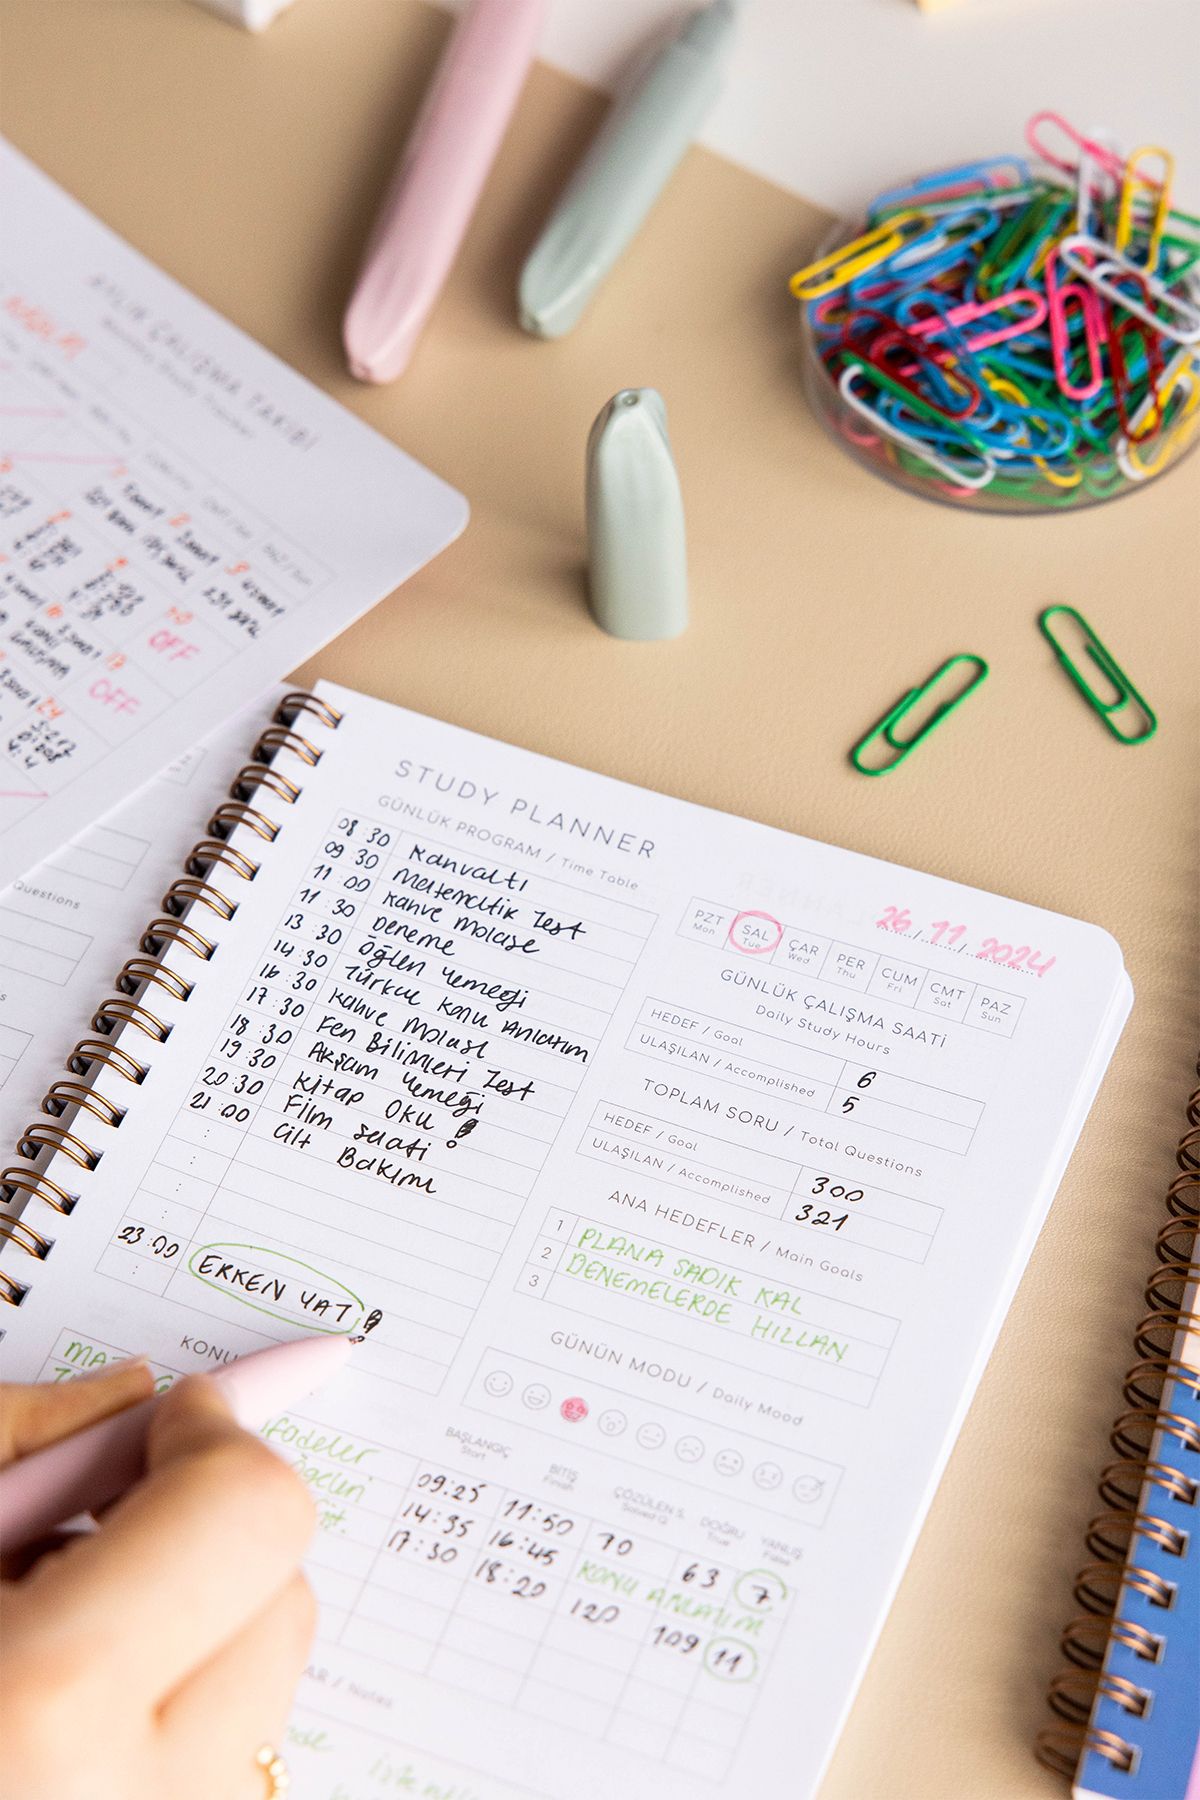 AYLIK ÇALIŞMA TAKİBİ
Monthly Study Tracker
OFF
OFF
Questions
STUDY PLANNER
GÜNLÜK PROGRAM / Time Table
08:30 Kahvaltı
09:30 Matematik Test
11:00 Kahve Molası
11:30 Deneme
13:30 Öğlen Yemeği
14:30 Türkçe Konu Anlatım
16:30 Kahve Molası
17:30 Fen Bilimleri Test
18:30 Akşam Yemeği
19:30 Kitap Oku !
20:30 Film Saati
21:00 Cilt Bakımı
:
:
:
23:00 ERKEN YAT !
:
26/11/2024
PZT SAL ÇAR PER CUM CMT PAZ
Mon Tue Wed Thu Fri Sat Sun
GÜNLÜK ÇALIŞMA SAATİ
Daily Study Hours
HEDEF / Goal 6
ULAŞILAN / Accomplished 5
TOPLAM SORU / Total Questions
HEDEF / Goal 300
ULAŞILAN / Accomplished 321
ANA HEDEFLER / Main Goals
1 PLANA SADIK KAL
2 DENEMELERDE HIZLAN
3
GÜNÜN MODU / Daily Mood
KONU
BAŞLANGIÇ BİTİŞ ÇÖZÜLEN S. DOĞRU YANLIŞ
Start Finish Solved Q. True False
MAT
09:25 11:50 70 63 7
ifadeler 14:35 16:45 KONU ANLATIM
Ögeleri 17:30 18:20 120 109 11
AR / Notes